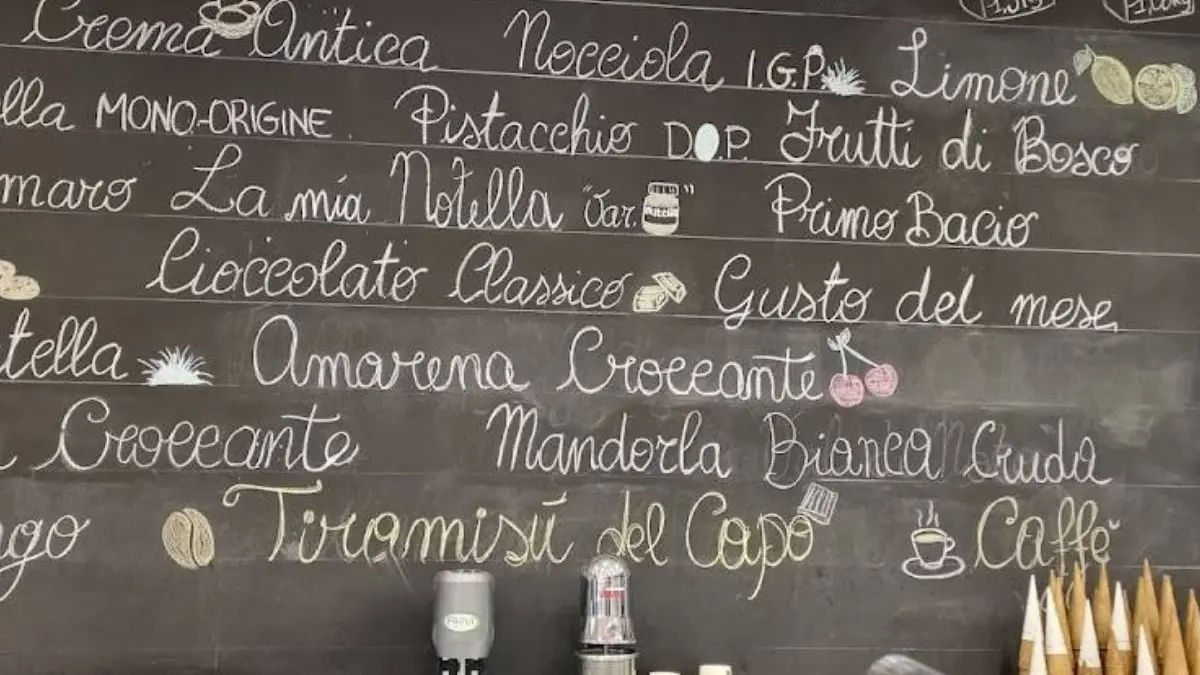 Crema Antica Nocciola I.G.P. Limone
lla MONO-ORIGINE Pistacchio D.O.P. Frutti di Bosco
maro La mia Notella "Var. Nutella" Primo Bacio
Cioccolato Classico Gusto del mese
tella Amarena Croccante
Croccante Mandorla Bianca Cruda
ngo Tiramisú del Capo Caffè